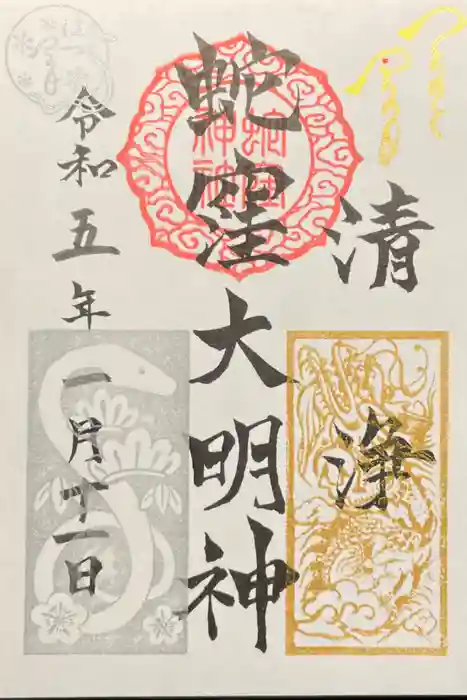 清浄
蛇窪大明神
令和五年一月十一日
蛇窪神社